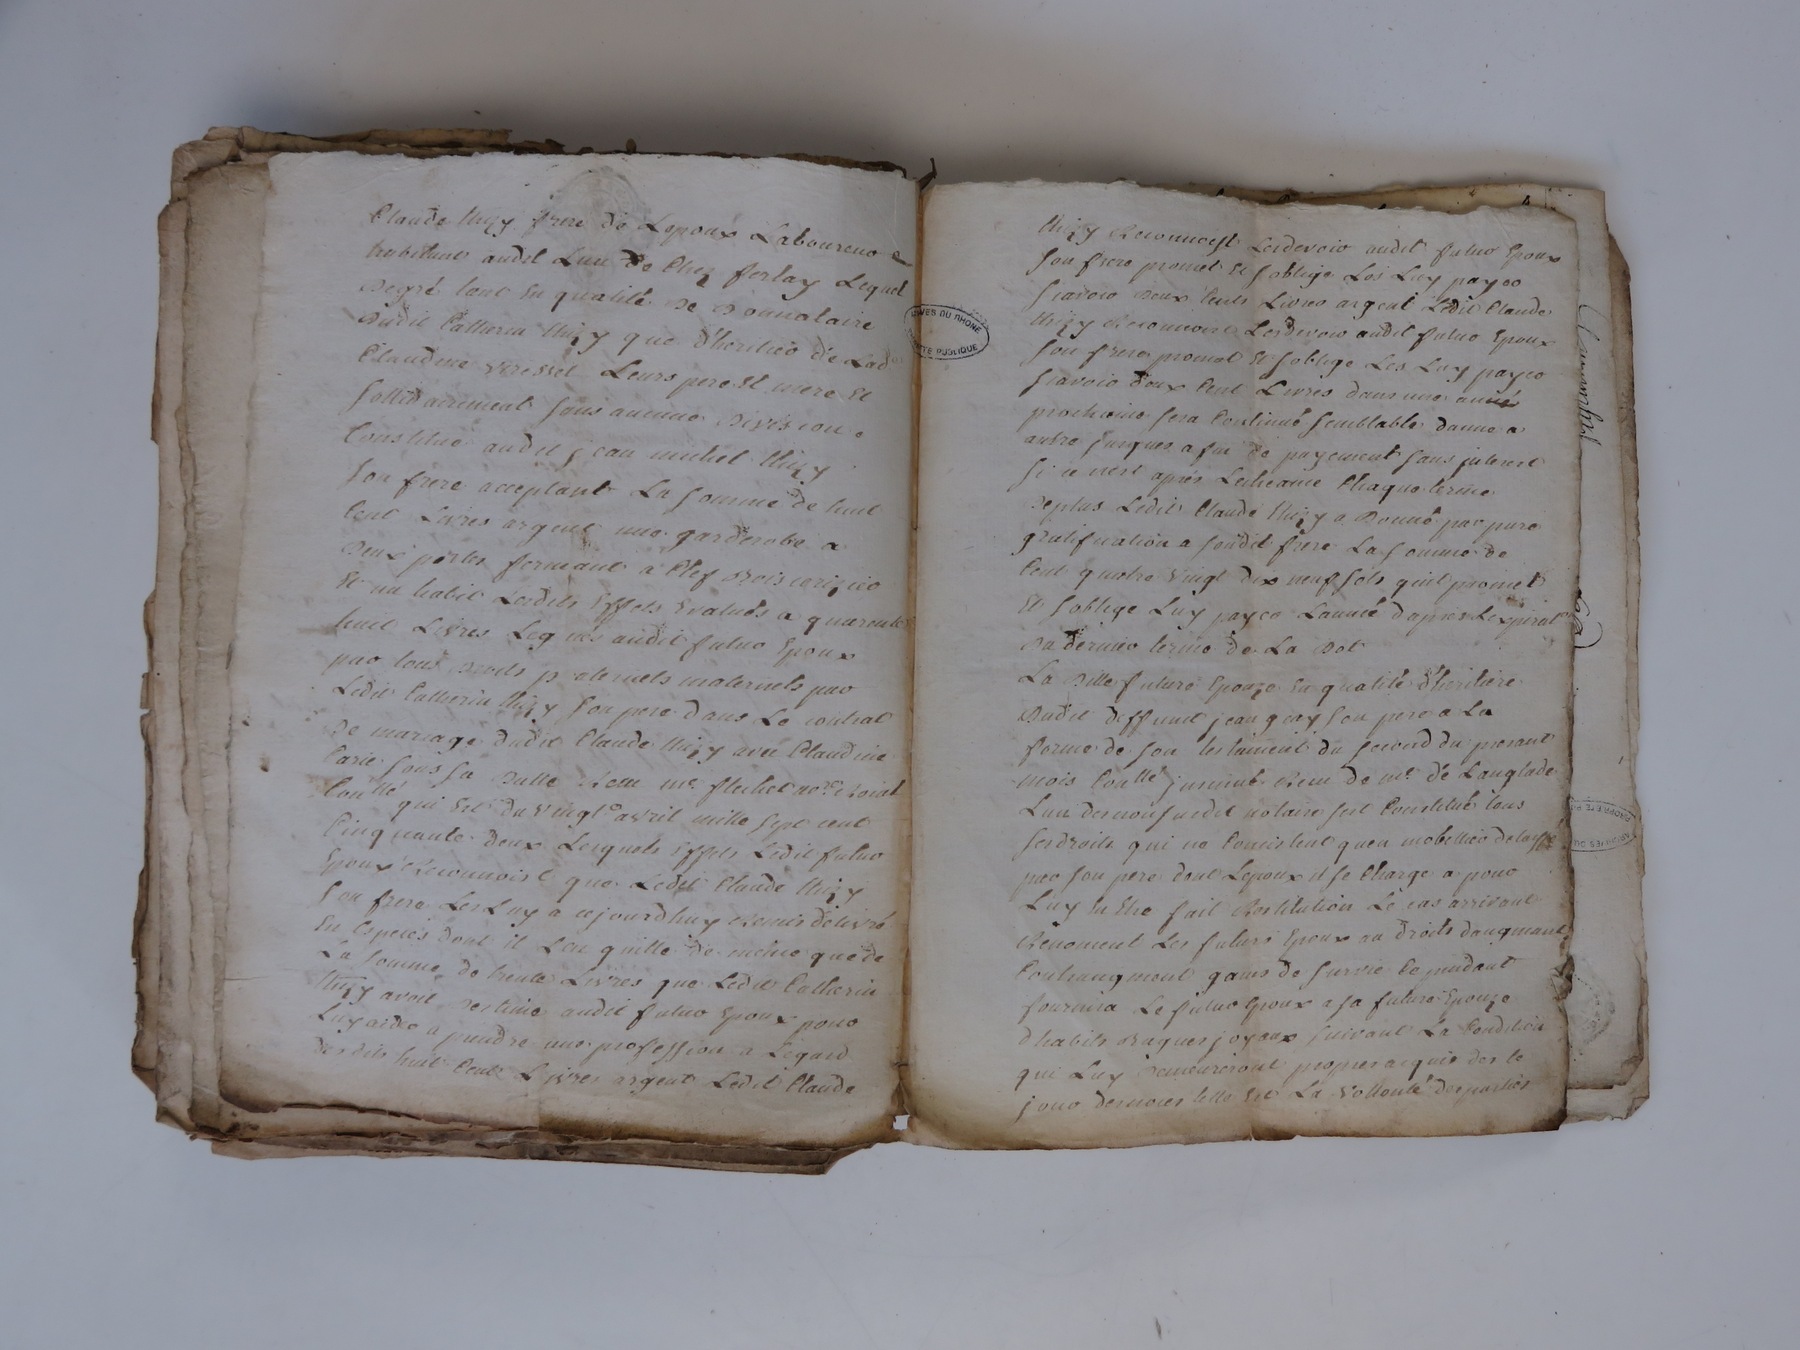 Claude thizy frere de Lepoux Laboureur
habitant audit Lieu de Chez ferlay Lequel
degré tant En qualité de Donnataire
dudit Catherin thizy que d'heritier de Lad
Claudine Leurs pere Et mere Et
sollidairement sans aucune Division
Constitue audit jean michel thizy
son frere acceptant La somme de huit
Cent Livres argent une garderobe a
deux portes fermant a Clef Bois cerizier
Et un habit Lesdits Effets Evalués a quarente
huit Livres Legués audit futur Epoux
par tous droits paternels maternels par
Ledit Catherin thizy son pere dans Le contrat
de mariage dudit Claude thizy avec Claudine
Carie sous sa datte Recu me flechet nore Roial
Contlé qui Est du vingt avril mille sept cent
Cinquante deux Lesquels Effets Ledit futur
Epoux Reconnoist que Ledit Claude thizy
son frere Les Luy a cejourdhuy Remis délivré
En Especes dont il Len quitte de meme que de
La somme de trente Livres que Ledit Catherin
thizy avoit destiné audit futur Epoux pour
Luy aider a prendre une profession a Legard
desdits huit Cent Livres argent Ledit Claude
thizy Reconnoist Lesdevoir audit futur Epoux
son frere promet Et soblige Les Luy payer
scavoir deux Cents Livres argent Ledit Claude
thizy Reconnoist Lesdevoir audit futur Epoux
son frere promet Et soblige Les Luy payer
scavoir deux Cent Livres dans une année
prochaine sera Continué semblable danne a
autre jusques a fin de payement sans jnterest
si ce nest après Lecheance Chaque terme
deplus Ledit Claude thizy a Donné par pure
gratification a sondit frere La somme de
Cent quatre vingt dix neuf sols quil promet
Et soblige Luy payer Lannée d'apres Lexpirat
du dernier terme de La Dot
La ditte future Epouze En qualité d'heritiere
dudit deffunt jean son pere a La
forme de son testament du second du presant
mois Contlé jnsinué Recu de me de Langlade
Lun denous susdit notaire sest Constitué tous
ses droits qui ne Consistent quen mobillier delaissé
par son pere dont Lepoux il se Charge a pour
Luy En Etre fait Restitution Le cas arrivant
Renoncent Les futurs Epoux au droits daugmant
Contraugment gains de survie Cependant
fournira Le futur Epoux a sa future Epouze
dhabits Bagues joyeaux suivant La Condition
qui Luy demeureront propres acquis des le
jour des noces telle Est La Vollonté des parties
ARCHIVES DU RHONE
PROPRIÉTÉ PUBLIQUE